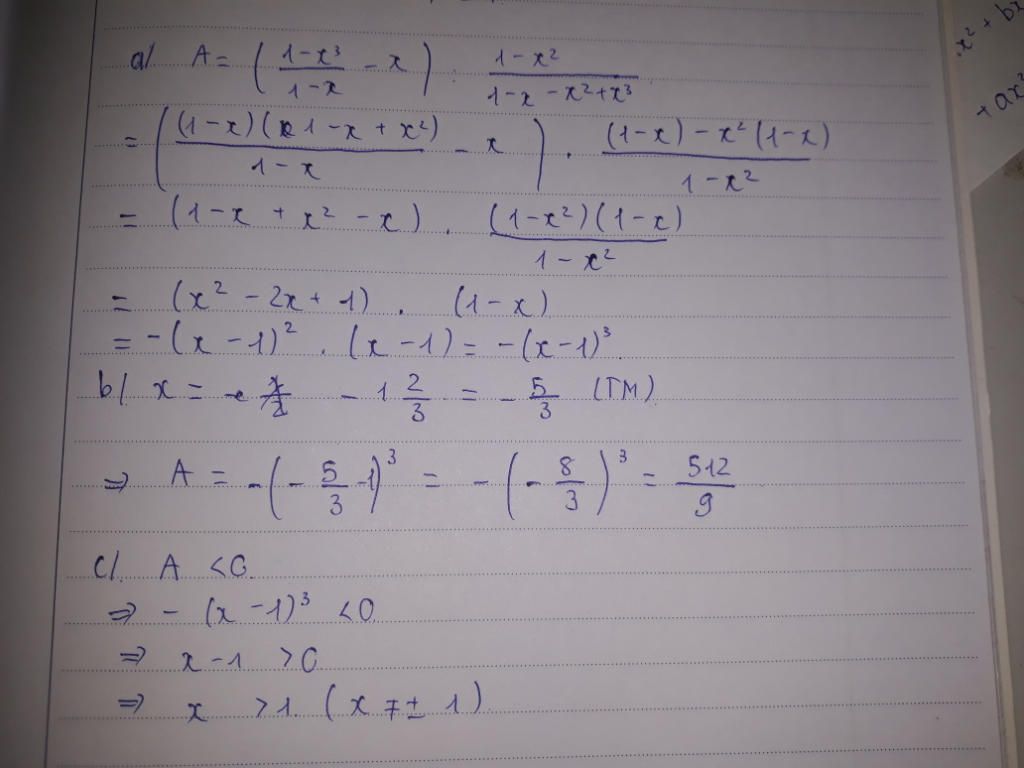 a/ A = ( (1-x³)/(1-x) - x ) : (1-x²)/(1-x-x²+x³)
= ( (1-x)(1-x+x²)/(1-x) - x ) . ((1-x)-x²(1-x))/(1-x²)
= (1-x+x²-x) . ((1-x²)(1-x))/(1-x²)
= (x²-2x+1) . (1-x)
= -(x-1)² . (x-1) = -(x-1)³.
b/ x = -1 2/3 = -5/3 (TM)
⇒ A = -(-5/3-1)³ = -(-8/3)³ = 512/9
c/. A <0.
⇒ -(x-1)³ <0
⇒ x-1 >0
⇒ x >1. (x ≠ ± 1)
x² + bx
+ ax²